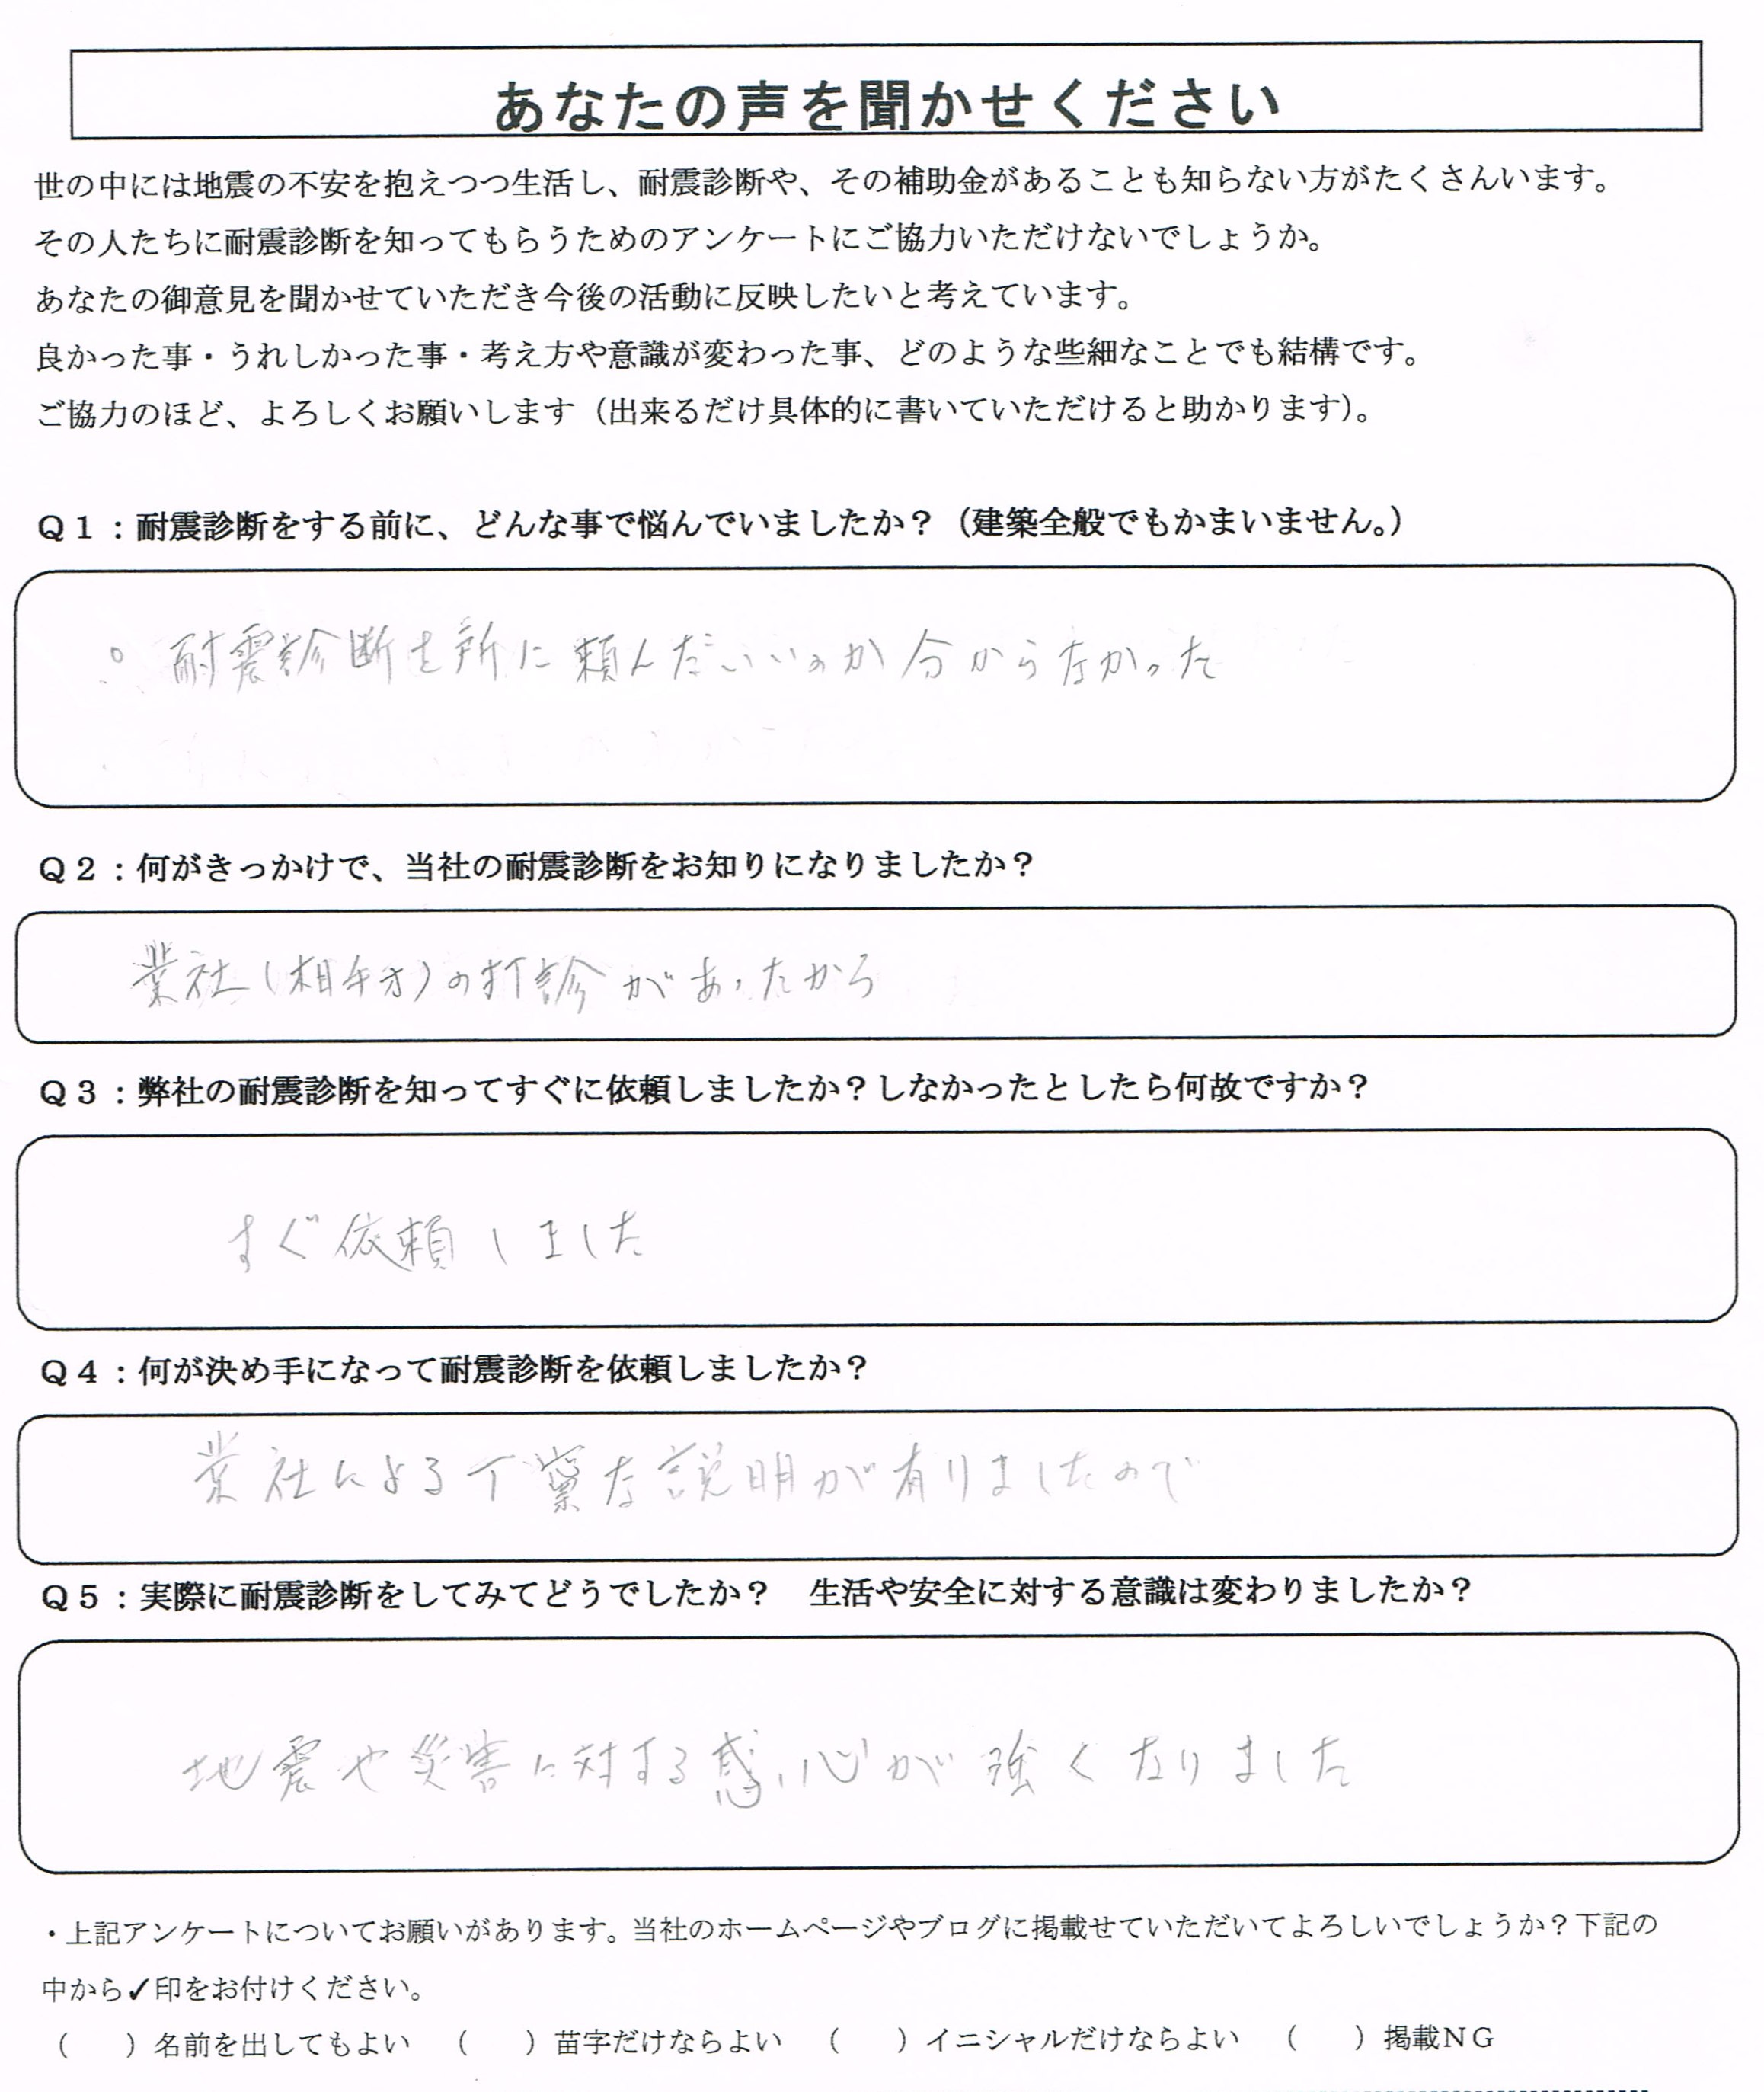 あなたの声を聞かせください
世の中には地震の不安を抱えつつ生活し、耐震診断や、その補助金があることも知らない方がたくさんいます。
その人たちに耐震診断を知ってもらうためのアンケートにご協力いただけないでしょうか。
あなたの御意見を聞かせていただき今後の活動に反映したいと考えています。
良かった事・うれしかった事・考え方や意識が変わった事、どのような些細なことでも結構です。
ご協力のほど、よろしくお願いします（出来るだけ具体的に書いていただけると助かります）。
Ｑ１：耐震診断をする前に、どんな事で悩んでいましたか？（建築全般でもかまいません。）
○ 耐震診断を所に頼んだいいのか分からなかった
Ｑ２：何がきっかけで、当社の耐震診断をお知りになりましたか？
業社（相手方）の打診があったから
Ｑ３：弊社の耐震診断を知ってすぐに依頼しましたか？しなかったとしたら何故ですか？
すぐ依頼しました
Ｑ４：何が決め手になって耐震診断を依頼しましたか？
業社による丁寧な説明が有りましたので
Ｑ５：実際に耐震診断をしてみてどうでしたか？　生活や安全に対する意識は変わりましたか？
地震や災害に対する感心が強くなりました
・上記アンケートについてお願いがあります。当社のホームページやブログに掲載せていただいてよろしいでしょうか？下記の
中から✓印をお付けください。
（　　）名前を出してもよい　（　　）苗字だけならよい　（　　）イニシャルだけならよい　（　　）掲載ＮＧ